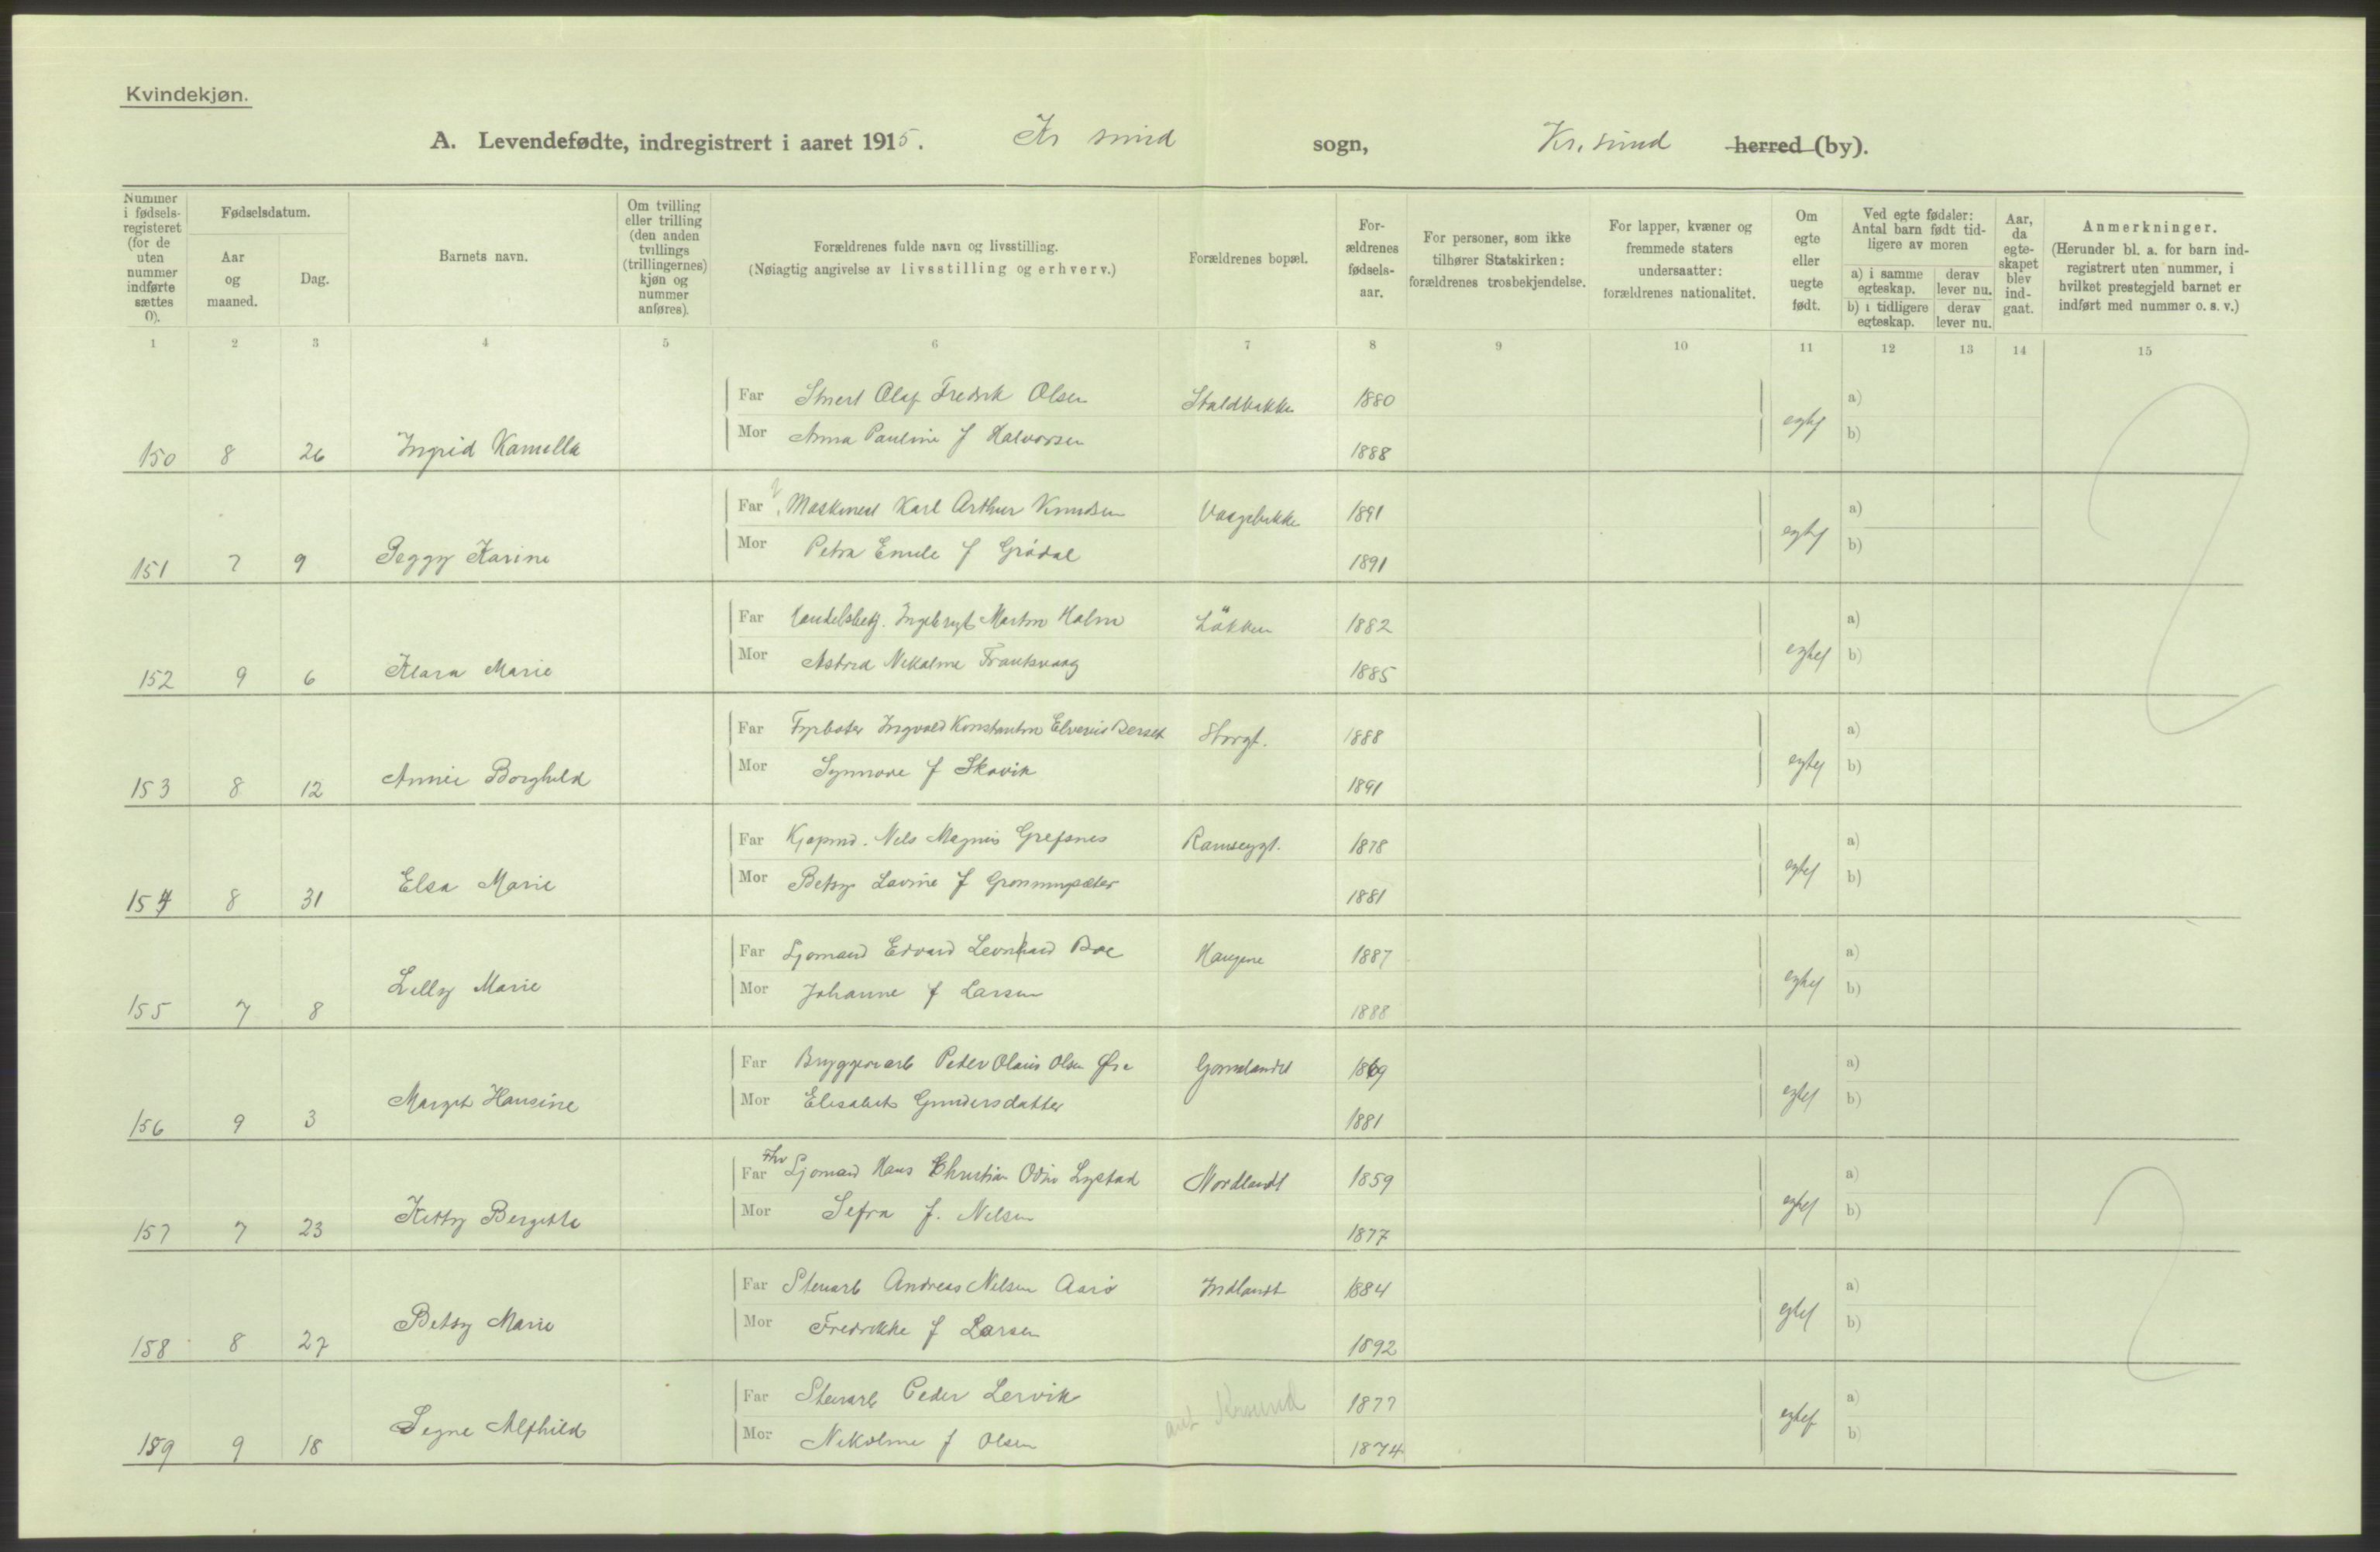 Kvindekjøn.
A. Levendefødte, indregistrert i aaret 1915. Kr sund sogn, Kr. sund herred (by).
Nummer i fødsels-registeret (for de uten nummer indførte sættes 0).
Fødselsdatum.
Aar og maaned.
Dag.
Barnets navn.
Om tvilling eller trilling (den anden tvillings (trillingernes) kjøn og nummer anføres).
Forældrenes fulde navn og livsstilling.
(Nøiagtig angivelse av livsstilling og erhverv.)
Forældrenes bopæl.
For-ældrenes fødsels-aar.
For personer, som ikke tilhører Statskirken: forældrenes trosbekjendelse.
For lapper, kvæner og fremmede staters undersaatter: forældrenes nationalitet.
Om egte eller uegte født.
Ved egte fødsler: Antal barn født tid-ligere av moren
a) i samme egteskap.
derav lever nu.
b) i tidligere egteskap.
derav lever nu.
Aar, da egte-skapet blev ind-gaat.
Anmerkninger.
(Herunder bl. a. for barn ind-registrert uten nummer, i hvilket prestegjeld barnet er indført med nummer o. s. v.)
1 2 3 4 5 6 7 8 9 10 11 12 13 14 15
Far Olaf Fredrik Olsen Staldbakken 1880 a)
Mor Anna Pauline f Halvorsen egtef b)
150 8 26 Ingrid Kamilla 1888
Far Maskinist Karl Arthur Knudsen Vaagebakke 1891 a)
Mor Petra Emile f Grödal egtef b)
151 7 9 Peggy Karine 1891
Far Handelsbetj. Ingebrigt Martin Holm Løkken 1882 a)
Mor Astrid Nikoline Frantsvaag egtef b)
152 9 6 Klara Marie 1885
Far Fyrbøter Ingvald Konstantin Elverius Berset Storgt. 1888 a)
Mor Synnøve f Skavik egtef b)
153 8 12 Annie Borghild 1891
Far Kjøpmd. Nels Magnus Grefsnes Ramsøygt. 1878 a)
Mor Betsy Lavine f Grønningsæter egtef b)
154 8 31 Elsa Marie 1881
Far Sjømand Edvard Leonhard Boe Haugene 1887 a)
Mor Johanne f Larsen egtef b)
155 7 8 Lilly Marie 1888
Far Bryggeriarb Peder Olaus Olsen Øre Gomalandet 1869 a)
Mor Elisabet Gundersdatter egtef b)
156 9 3 Margit Hansine 1881
Far Sjømand Hans Christian Odin Lystad Nordlandt 1859 a)
Mor Sefra f. Nilsen egtef b)
157 7 23 Kitty Bergitte 1877
Far Stenarb Andreas Nilsen Aarø Indlandt 1884 a)
Mor Fredrikke f Larsen egtef b)
158 8 27 Betsy Marie 1892
Far Stenarb Peder Lervik ant Krsund 1877 a)
Mor Nikoline f Olsen egtef b)
159 9 18 Signe Alfhild 1874